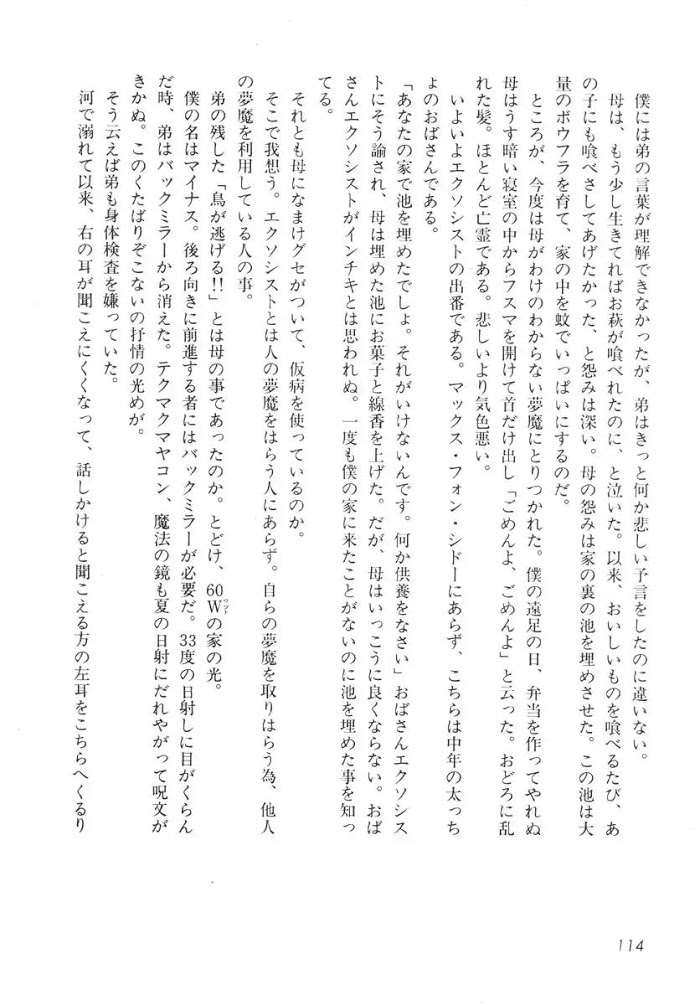 僕には弟の言葉が理解できなかったが、弟はきっと何か悲しい予言をしたのに違いない。
母は、もう少し生きてればお萩が喰べれたのに、と泣いた。以来、おいしいものを喰べるたび、あ
の子にも喰べさしてあげたかった、と怨みは深い。母の怨みは家の裏の池を埋めさせた。この池は大
量のボウフラを育て、家の中を蚊でいっぱいにするのだ。
ところが、今度は母がわけのわからない夢魔にとりつかれた。僕の遠足の日、弁当を作ってやれぬ
母はうす暗い寝室の中からフスマを開けて首だけ出し「ごめんよ、ごめんよ」と云った。おどろに乱
れた髪。ほとんど亡霊である。悲しいより気色悪い。
いよいよエクソシストの出番である。マックス・フォン・シドーにあらず、こちらは中年の太っち
ょのおばさんである。
「あなたの家で池を埋めたでしょ。それがいけないんです。何か供養をなさい」おばさんエクソシス
トにそう諭され、母は埋めた池にお菓子と線香を上げた。だが、母はいっこうに良くならない。おば
さんエクソシストがインチキとは思われぬ。一度も僕の家に来たことがないのに池を埋めた事を知っ
てる。
それとも母になまけグセがついて、仮病を使っているのか。
そこで我想う。エクソシストとは人の夢魔をはらう人にあらず。自らの夢魔を取りはらう為、他人
の夢魔を利用している人の事。
弟の残した「鳥が逃げる!!」とは母の事であったのか。とどけ、60Wワットの家の光。
僕の名はマイナス。後ろ向きに前進する者にはバックミラーが必要だ。33度の日射しに目がくらん
だ時、弟はバックミラーから消えた。テクマクマヤコン、魔法の鏡も夏の日射にだれやがって呪文が
きかぬ。このくたばりぞこないの抒情の光めが。
そう云えば弟も身体検査を嫌っていた。
河で溺れて以来、右の耳が聞こえにくくなって、話しかけると聞こえる方の左耳をこちらへくるり
114